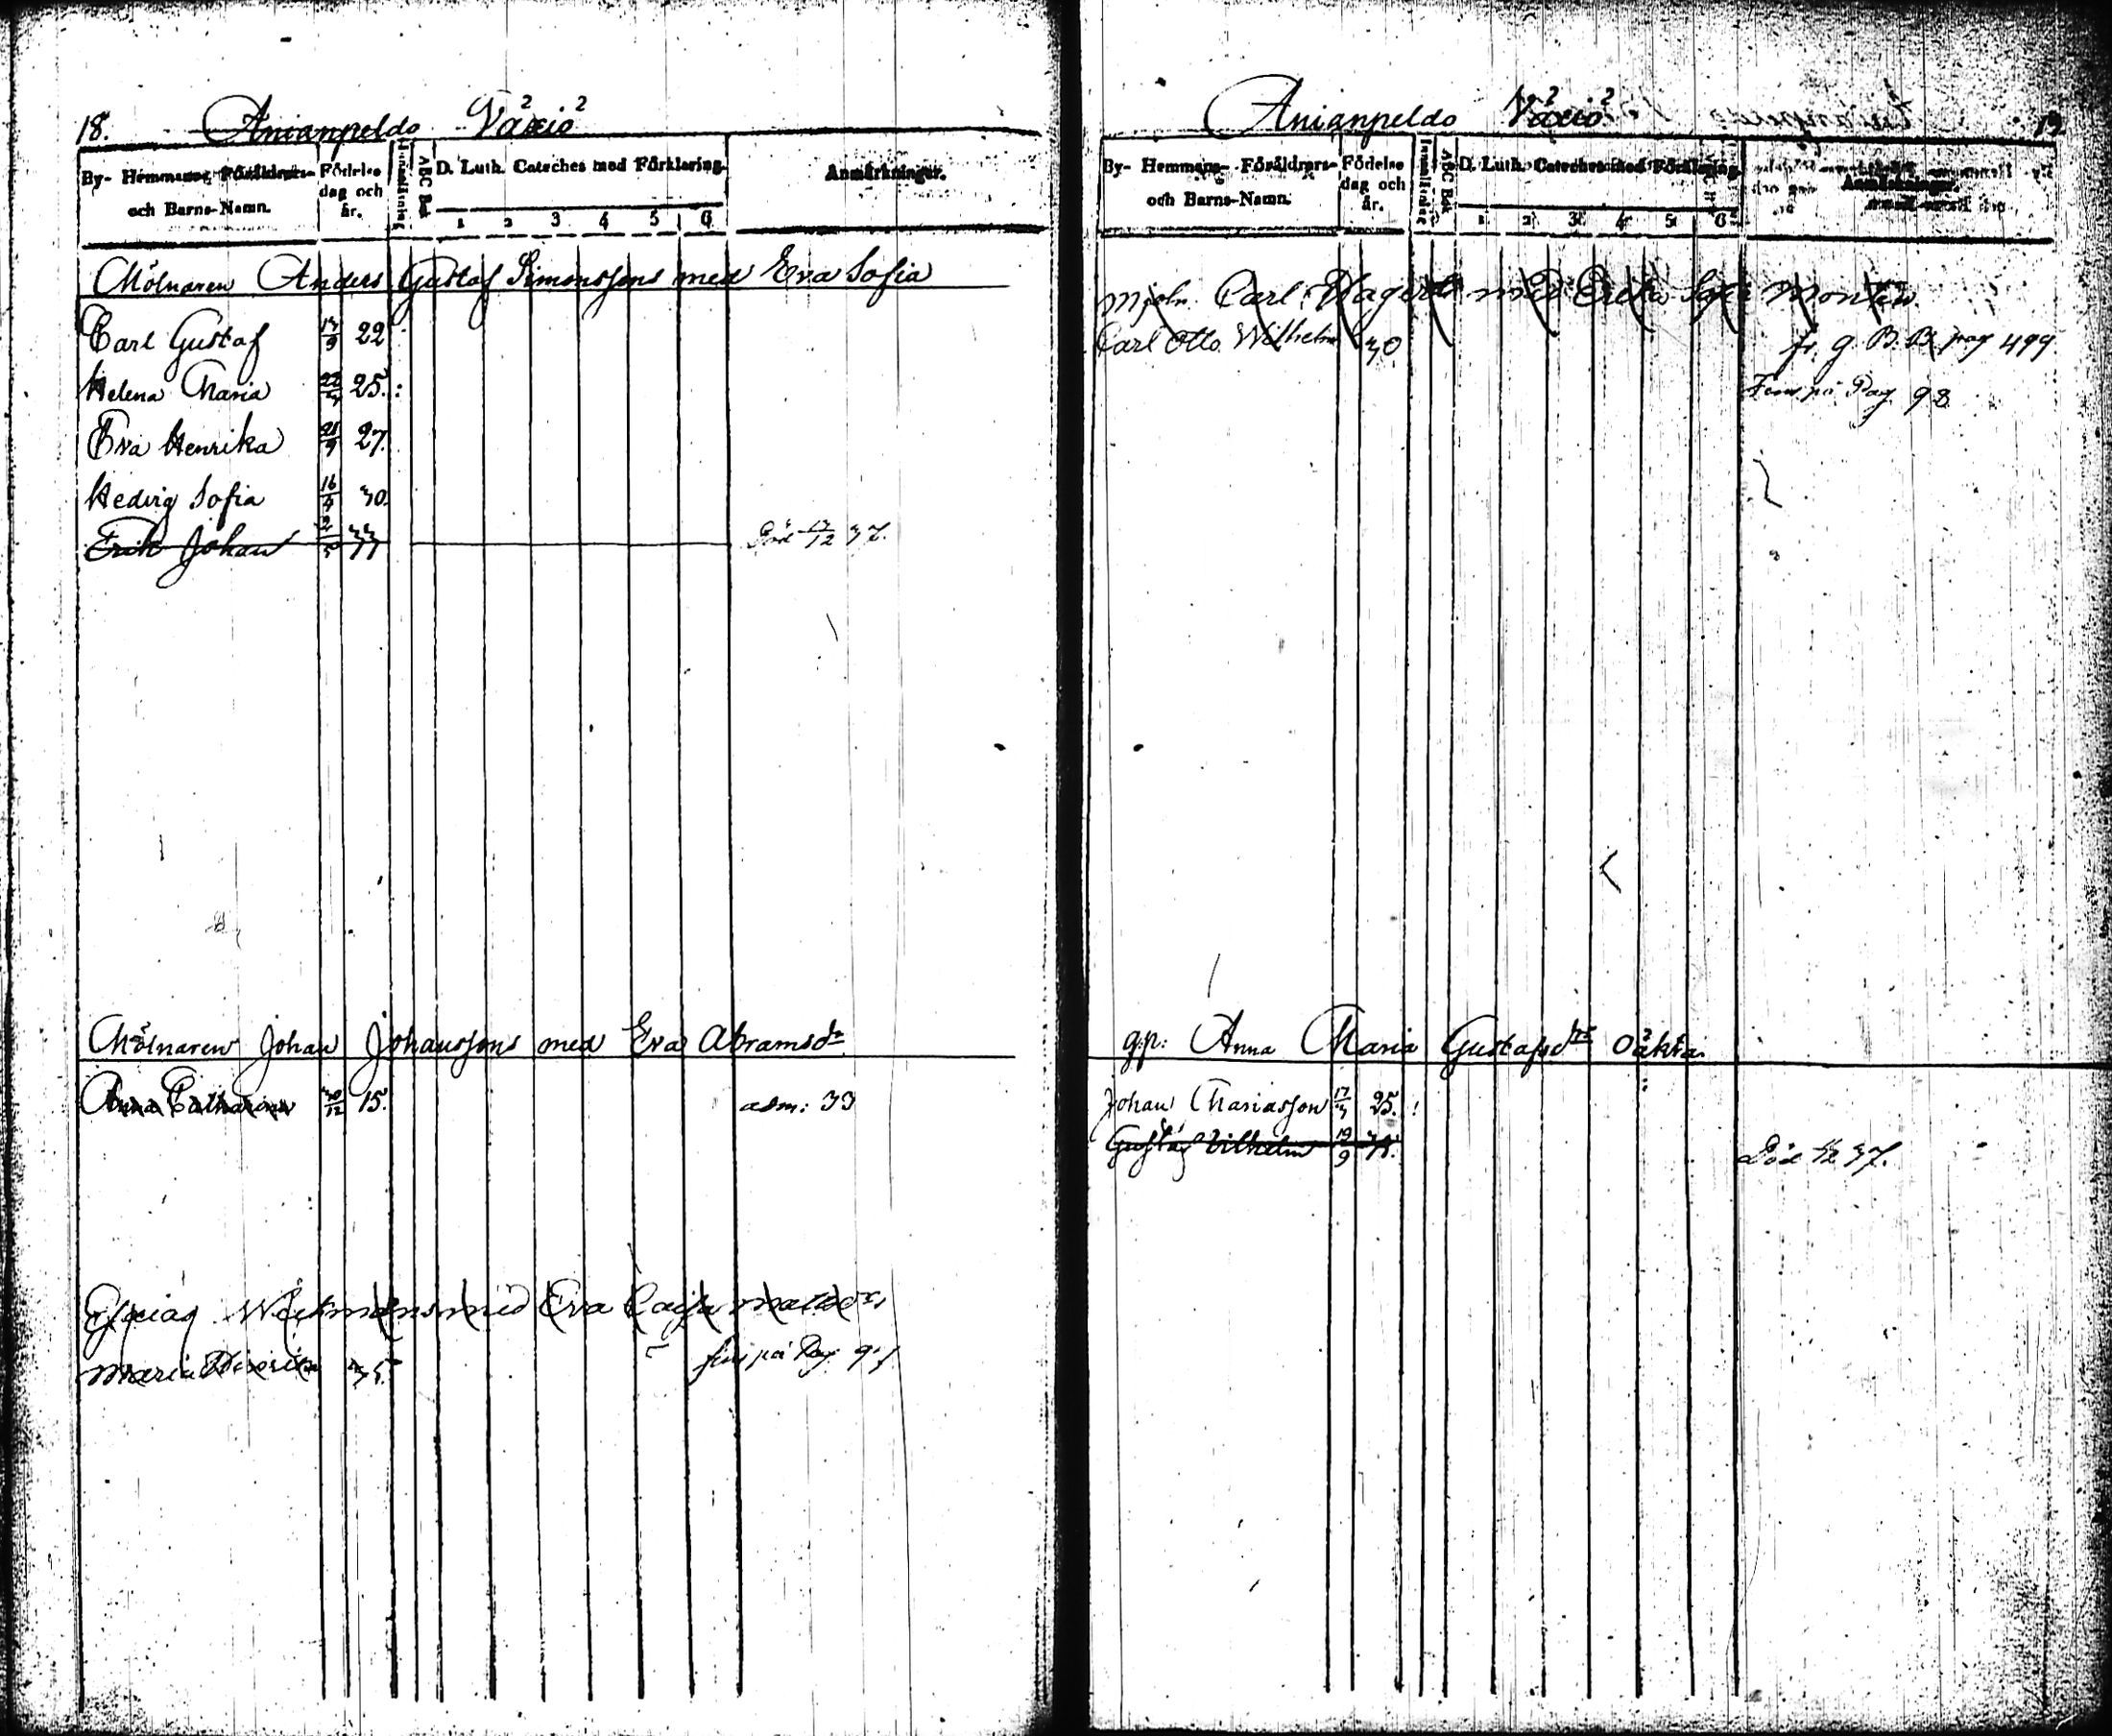 18. Anianpeldo Växiö
By- Hemmans- Föräldrars- och Barns-Namn. Födelse dag och år. Innanläsning ABC Bok D. Luth. Cateches med Förklaring. 1 2 3 4 5 6 Anmärkningar.
Mölnaren Anders Gustaf Simonssons med Eva Sofia
Carl Gustaf 22
Helena Maria 25.
Eva Henrika 21/9 27.
Hedvig Sofia 30.
Erik Johan 33 Död 37.
Mölnaren Johan Johanssons med Eva Abramsdr
Anna Catharina 30/12 15. adm: 33
med Eva Caisa
Maria 35. fins på Pag. 97
Anianpeldo Växiö 19
By- Hemmans- Föräldrars- och Barns-Namn. Födelse dag och år. Innanläsning ABC Bok D. Luth. Cateches med Förklaring. 1 2 3 4 5 6 Anmärkningar.
Mjöln. Carl med Erika Sofia
Carl Otto Wilhelm 30 fr. g. B. B. pag 499.
Fins på Pag. 98
g.p: Anna Maria Gustafsdrs oäkta
Johan Mariasson 17/3 25.
Gustaf Vilhelm 19/9 Död 37.